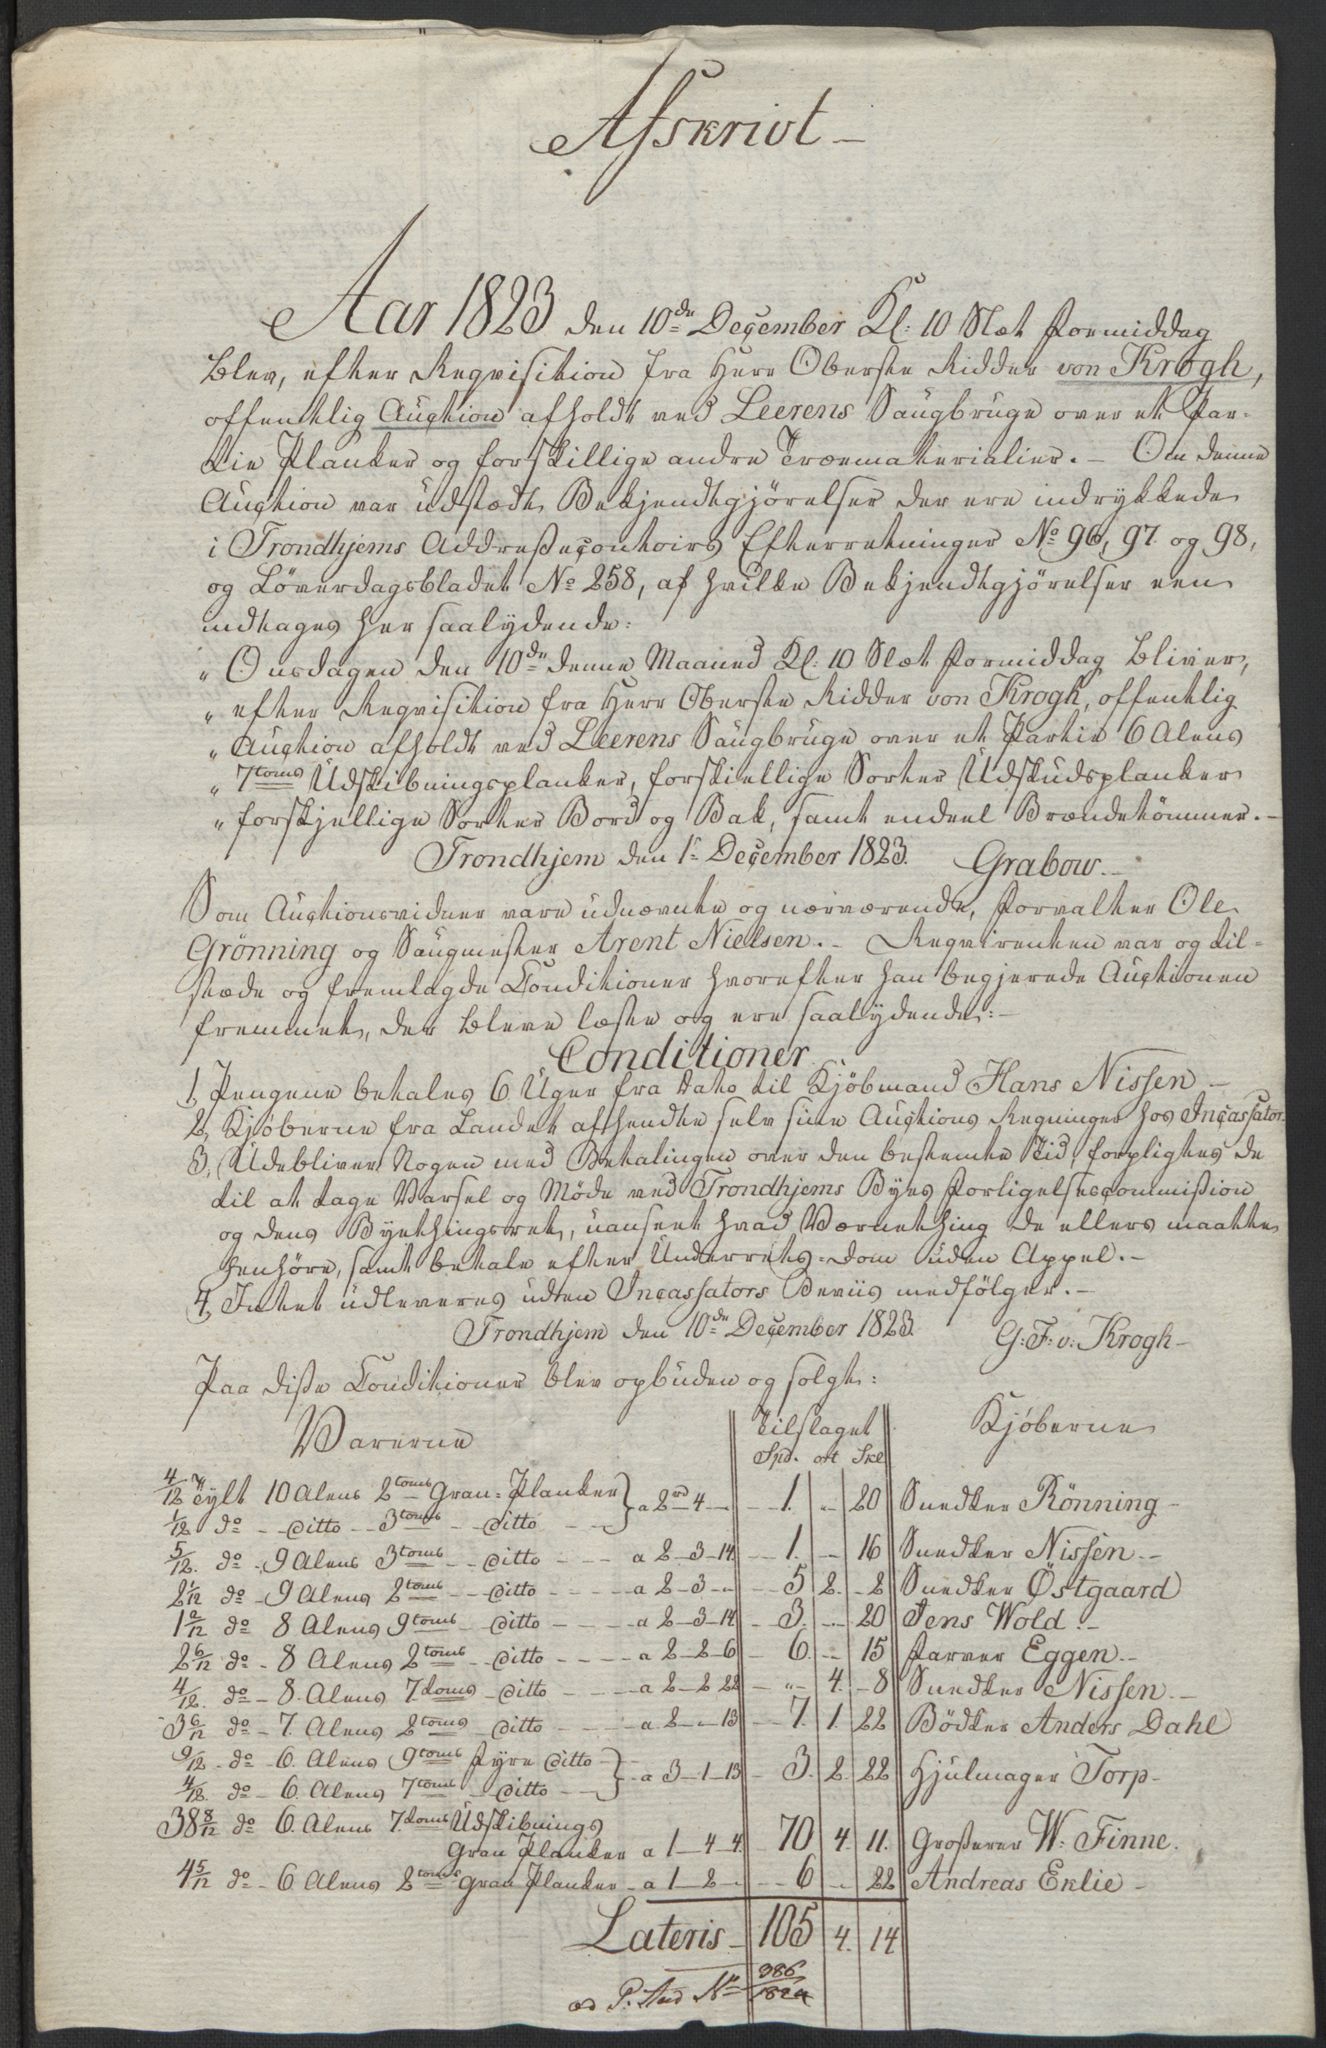 Afskrivt –
Aar 1823 den 10de December Kl: 10 Slæt Formiddag
blev, efter Reqvisition fra Herr Oberste Ridder von Krogh,
offentlig Auction afholdt ved Leerens Saugbruge over et Par-
tie Planker og forskillige andre Træematerialier. – Om denne
Auction var udstædt Bekjendtgjørelser der ere indrykkede
i Trondhjems Addressecontoirs Efterretninger No 96, 97 og 98,
og Løverdagsbladet No 258, af hvilke Bekjendtgjørelser een
indtages her saalydende:
„ Onsdagen den 10de denne Maaned Kl: 10 Slæt Formiddag bliver,
„ efter Reqvisition fra Herr Oberste Ridder von Krogh, offentlig
„ Auction afholdt ved Leerens Saugbruge over et Partie 6 Alens
„ 7toms Udskibningsplanker, forskiellige Sorter Udskudsplanker
„ forskjellige Sorter Bord og Bak, samt endeel Brændetømmer. –
Trondhjem den 1te December 1823. Grabow. –
Som Auctionsvidner vare udnævnte og nærværende, Forvalter Ole
Grønning og Saugmester Arent Nielsen. – Reqvirenten var og til-
stæde og fremlagde Conditioner hvorefter han begjerede Auctionen
fremmet, der bleve læste og ere saalydende: –
Conditioner
1, Pengene betales 6 Uger fra Dato til Kjøbmand Hans Nissen –
2, Kjøberne fra Landet afhendte selv sine Auctions Regninger hos Incassator.
3, Udebliver Nogen med Betalingen over den bestemte Tid, forpligtes de
til at tage Varsel og Møde ved Trondhjems Byes Forligelsescommission
og dens Byethingsret, uanseet hvad Værnething de ellers maatte
henhøre, samt betale efter Underrets-Dom uden Appel. –
4, Intet udleveres uden Incassators Beviis medfølger. –
Trondhjem den 10de December 1823. G: F: v: Krogh –
Paa disse Conditioner blev opbuden og solgt:
Varerne Tilslaget Kjøberne
Spd. ort Skl
4/12 Tylt 10 Alens 2toms Gran-Planker } a 2rd 4 – – 1. – 20 Snedker Rönning –
1/12 do – ditto – 3toms – ditto –
5/12 do – 9 Alens 3toms – ditto – a 2 – 3 – 14 – 1. – 16 Snedker Nissen. –
2 1/12 do – 9 Alens 2toms – ditto – a 2 – 3 – „ – 5 2. 2 Snedker Östgaard
1 2/12 do 8 Alens 9toms – ditto – a 2 – 3 – 14 – 3. – 20 Jens Wold. –
2 6/12 do – 8 Alens 2toms – ditto – a 2 – 2 – 6 – 6. – 15 Farver Eggen. –
4/12 do – 8 Alens 7toms – ditto – a 2 – 2 22 – „ – 4. – 8 Snedker Nissen. –
3 6/12 do – 7. Alens 2toms – ditto – a 2 – „ – 13 – 7. 1. 22 Bödker Anders Dahl
9/12 do – 6. Alens 9toms Fyre ditto – } a 3 – 1 – 13 – 3. 2. 22 Hjulmager Torp –
4/12 do – 6. Alens 7toms – ditto –
38 8/12 do 6. Alens 7toms Udskibnings
Gran Planker a 1 – 4 – 4. – 70 4. 11. Grosserer W: Finne.
4 5/12 do – 6 Alens 2toms Gran Planker – a 1 – 2 – „ – 6 – 22 Andreas Eklie –
Lateris – 105 4. 14
ad P: And No 986/1824